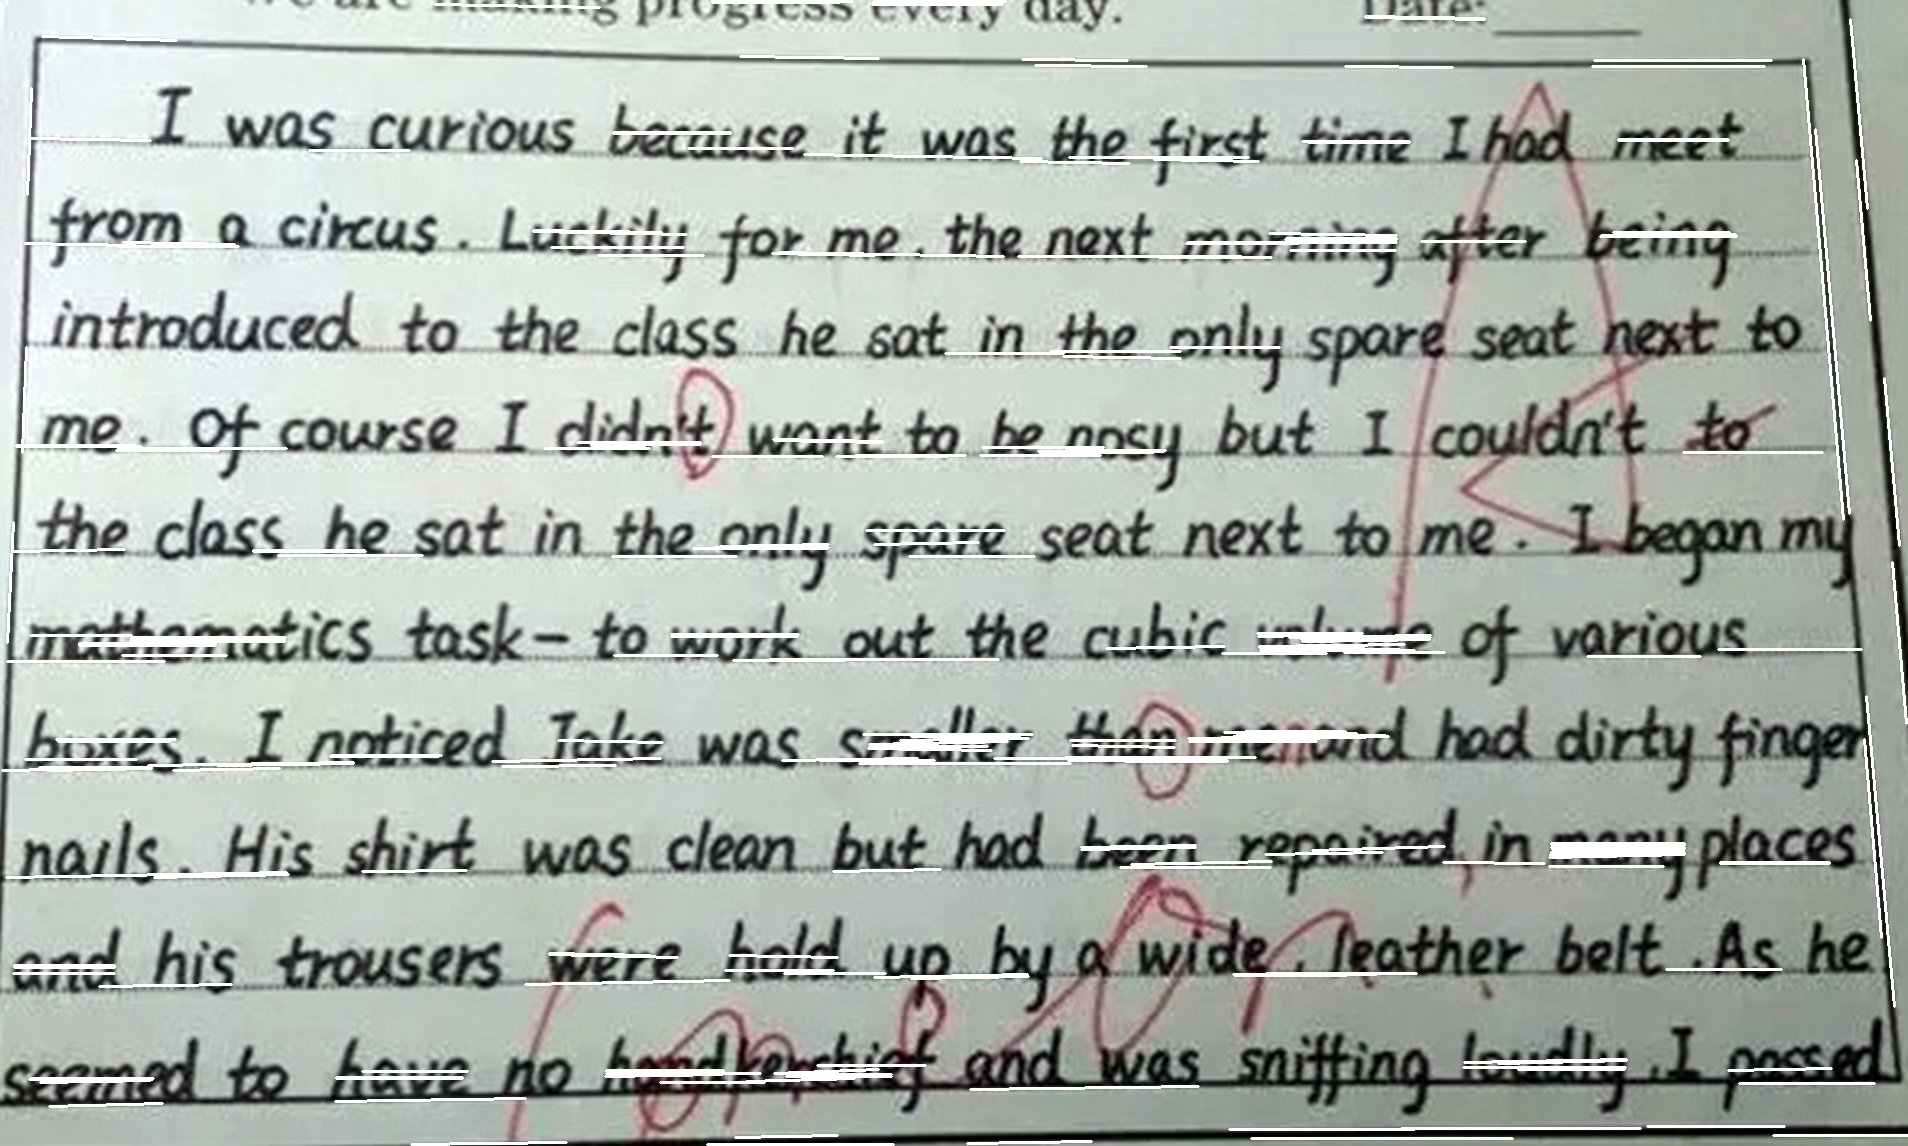 we are making progress every day. Date:
I was curious because it was the first time I had meet
from a circus. Luckily for me. the next morning after being
introduced to the class he sat in the only spare seat next to
me. Of course I didn't want to be nosy but I couldn't to
the class he sat in the only spare seat next to me. I began my
mathematics task- to work out the cubic volume of various
boxes. I noticed Jake was smaller than me and had dirty finger
nails. His shirt was clean but had been repaired in many places
and his trousers were hold up by a wide. leather belt. As he
seemed to have no handkerchief and was sniffing loudly. I passed